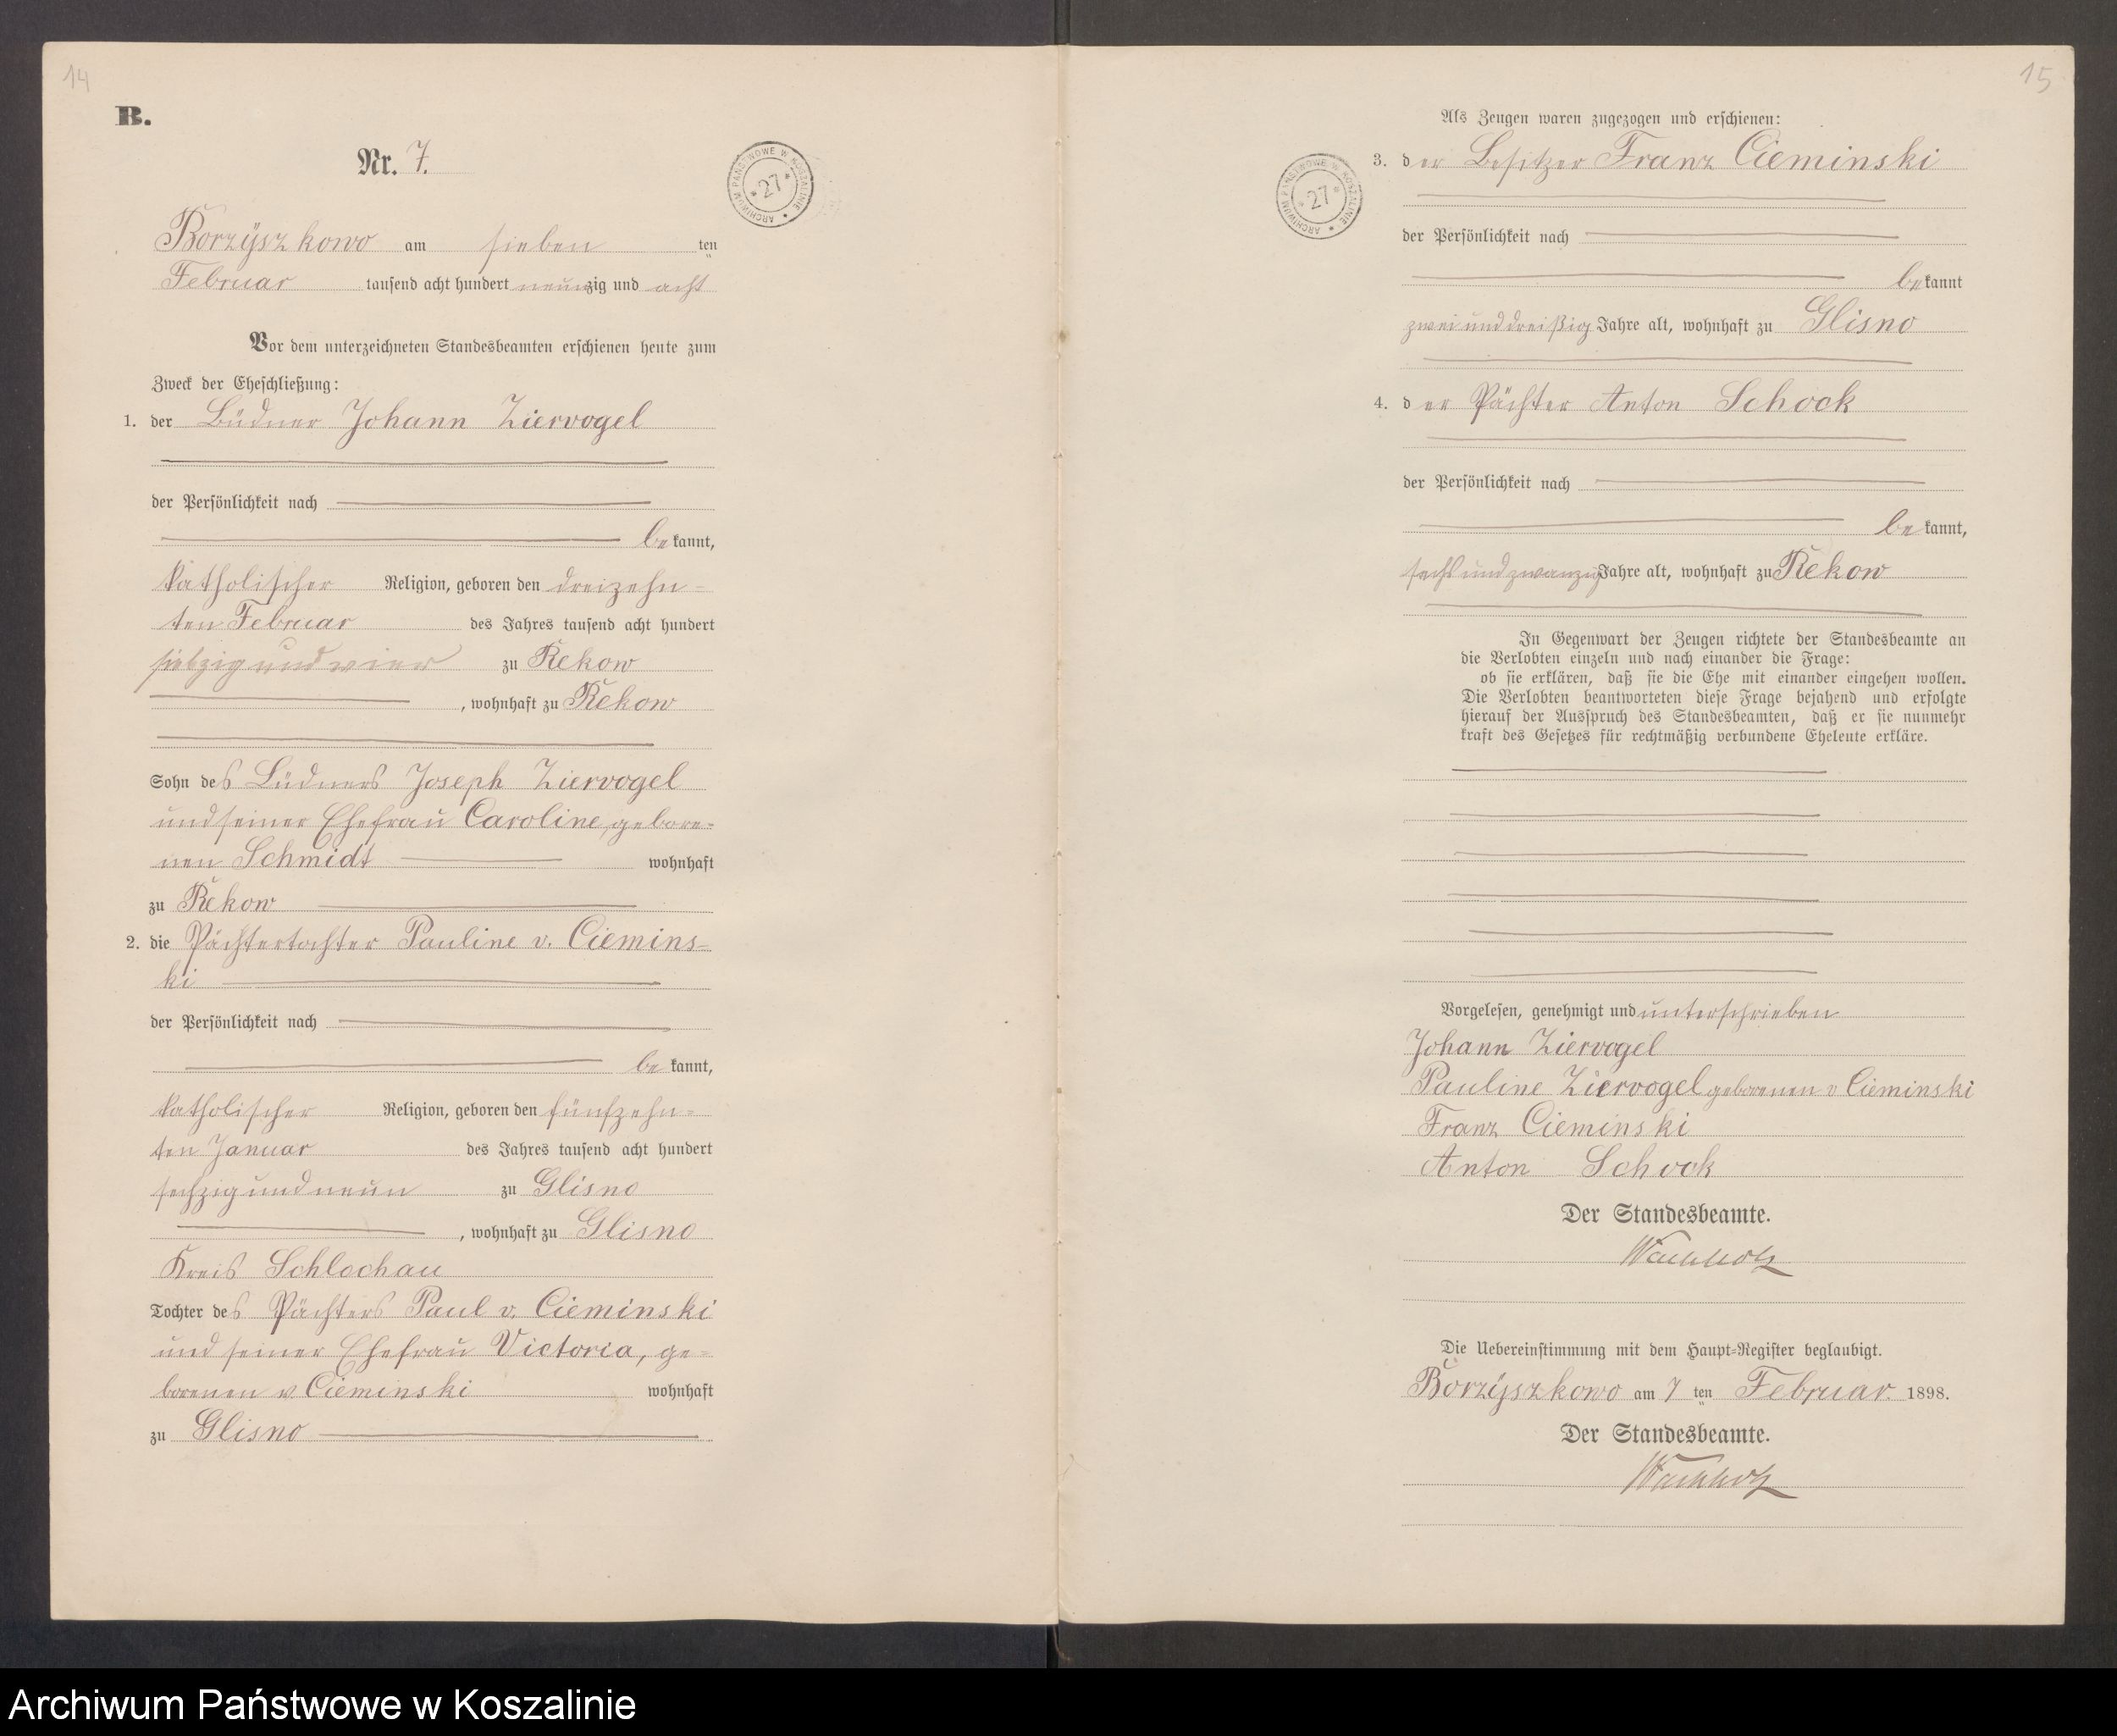 14
B.
Nr. 7.
ARCHIWUM PAŃSTWOWE W KOSZALINIE * 27 *
Borzÿszkowo am sieben ten
Februar tausend acht hundert neunzig und acht
Vor dem unterzeichneten Standesbeamten erschienen heute zum
Zweck der Eheschließung:
1. der Büdner Johann Ziervogel
der Persönlichkeit nach
bekannt,
katholischer Religion, geboren den dreizehn-
ten Februar des Jahres tausend acht hundert
siebzig und vier zu Rekow
, wohnhaft zu Rekow
Sohn des Büdners Joseph Ziervogel
und seiner Ehefrau Caroline, gebore-
nen Schmidt wohnhaft
zu Rekow
2. die Pächtertochter Pauline v. Ciemins-
ki
der Persönlichkeit nach
bekannt,
katholischer Religion, geboren den fünfzehn-
ten Januar des Jahres tausend acht hundert
sechzig und neun zu Glisno
, wohnhaft zu Glisno
Kreis Schlochau
Tochter des Pächters Paul v. Cieminski
und seiner Ehefrau Victoria, ge-
borenen v. Cieminski wohnhaft
zu Glisno
15
Als Zeugen waren zugezogen und erschienen:
ARCHIWUM PAŃSTWOWE W KOSZALINIE * 27 *
3. der Besitzer Franz Cieminski
der Persönlichkeit nach
bekannt
zwei und dreißig Jahre alt, wohnhaft zu Glisno
4. der Pächter Anton Schook
der Persönlichkeit nach
bekannt,
sechs und zwanzig Jahre alt, wohnhaft zu Rekow
In Gegenwart der Zeugen richtete der Standesbeamte an
die Verlobten einzeln und nach einander die Frage:
ob sie erklären, daß sie die Ehe mit einander eingehen wollen.
Die Verlobten beantworteten diese Frage bejahend und erfolgte
hierauf der Ausspruch des Standesbeamten, daß er sie nunmehr
kraft des Gesetzes für rechtmäßig verbundene Eheleute erkläre.
Vorgelesen, genehmigt und unterschrieben
Johann Ziervogel
Pauline Ziervogel geborenen v Cieminski
Franz Cieminski
Anton Schook
Der Standesbeamte.
Wachholz
Die Uebereinstimmung mit dem Haupt-Register beglaubigt.
Borzÿszkowo am 7 ten Februar 1898.
Der Standesbeamte.
Wachholz
Archiwum Państwowe w Koszalinie